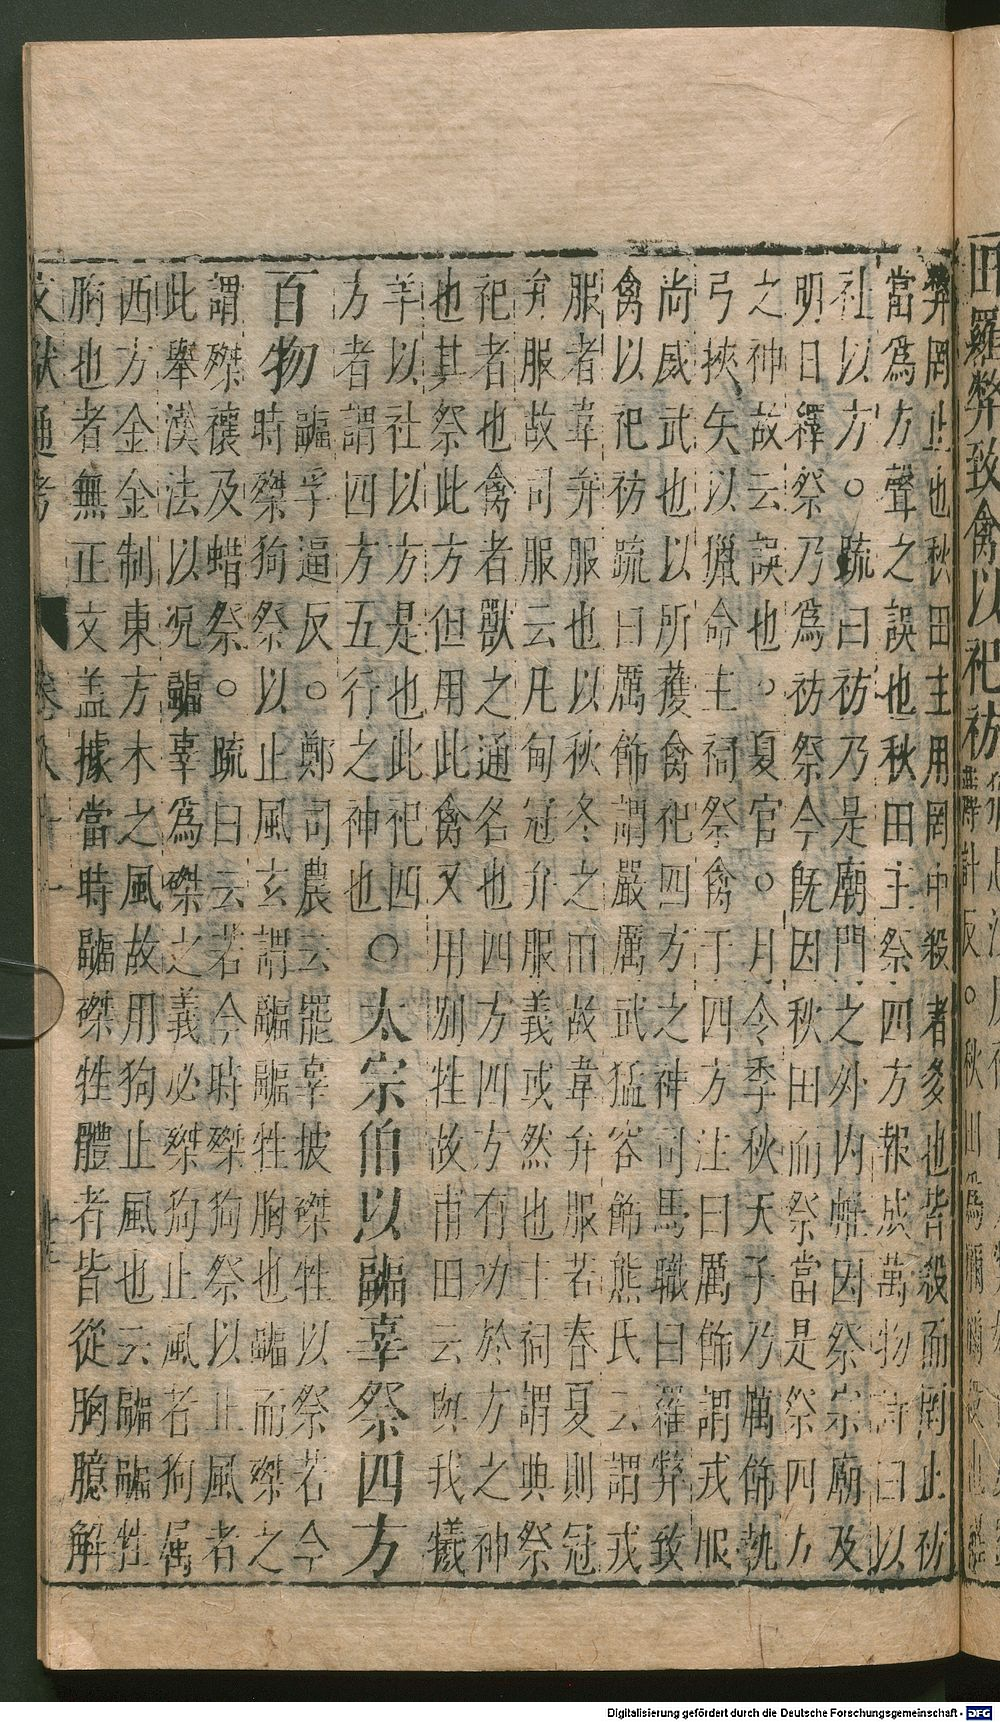 田羅弊致禽以祀祊
弊罔止也秋田主用罔中殺者多也皆殺而罔止祊
當爲方聲之誤也秋田主祭四方報成萬物詩曰以
社以方。疏曰祊乃是廟門之外內惟因祭宗廟及
明日繹祭乃爲祊祭今旣因秋田而祭當是祭四方
之神故云誤也。夏官。月令季秋天子乃厲飾執
弓挾矢以獵命主祠祭禽于四方注曰厲飾謂戎服
尚威武也以所獲禽祀四方之神司馬職曰羅弊致
禽以祀祊疏曰厲飾謂嚴厲武猛容飾熊氏云謂戎
服者韋弁服也以秋冬之田故韋弁服若春夏則冠
弁服故司服云凡甸冠弁服義或然也主祠謂典祭
祀者也禽者獸之通名也四方四方有功於方之神
也其祭此方但用此禽又用別牲故甫田云與我犧
羊以社以方是也此祀四
方者謂四方五行之神也
○太宗伯以疈辜祭四方
百物
疈孚逼反。鄭司農云罷辜披磔牲以祭若今
時磔狗祭以止風玄謂疈疈牲胸也疈而磔之
謂磔禳及蜡祭。疏曰云若今時磔狗祭以止風者
此舉漢法以况疈辜爲磔之義必磔狗止風者狗屬
西方金金制東方木之風故用狗止風也云疈疈牲
胸也者無正文蓋據當時疈磔牲體者皆從胸臆解
文獻通考
Digitalisierung gefördert durch die Deutsche Forschungsgemeinschaft - DFG